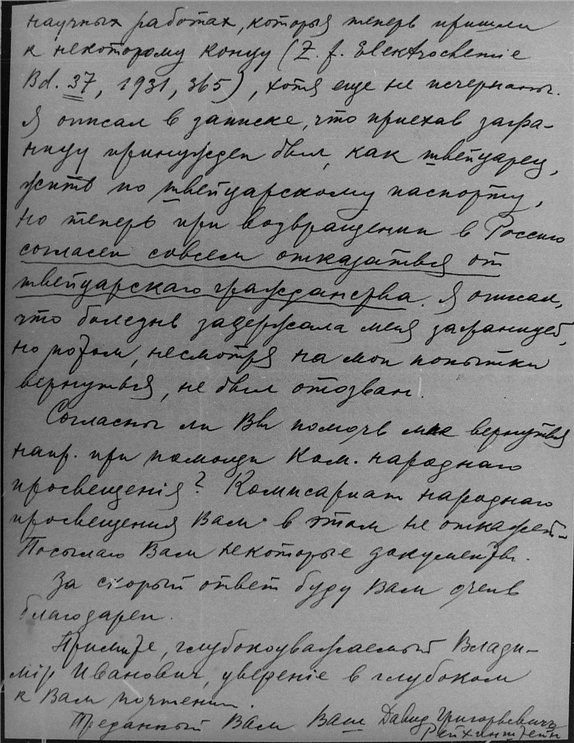 научных работах, которыя теперь пришли
к некоторому концу (Z. f. Elektrochemie
Bd. 37, 1931, 365), хотя еще не исчерпаны.
Я описал в записке, что приехав загра-
ницу принужден был, как швейцарец,
жить по швейцарскому паспорту,
но теперь при возвращении в Россию
согласен совсем отказаться от
швейцарскаго гражданства. Я описал,
что болезнь задержала меня заграницей,
но потом, несмотря на мои попытки
вернуться, не был отозван.
Согласны ли Вы помочь мне вернуться
напр. при помощи Ком. народнаго
просвещенія? Комисариат народнаго
просвещения Вам в этом не откажет.
Посылаю Вам некоторые документы.
За скорый ответ буду Вам очень
благодарен.
Примите, глубокоуважаемый Влади-
мір Иванович, уверение в глубоком
к Вам почтении.
Преданный Вам Ваш Давид Григорьевич
Рейхинштейн